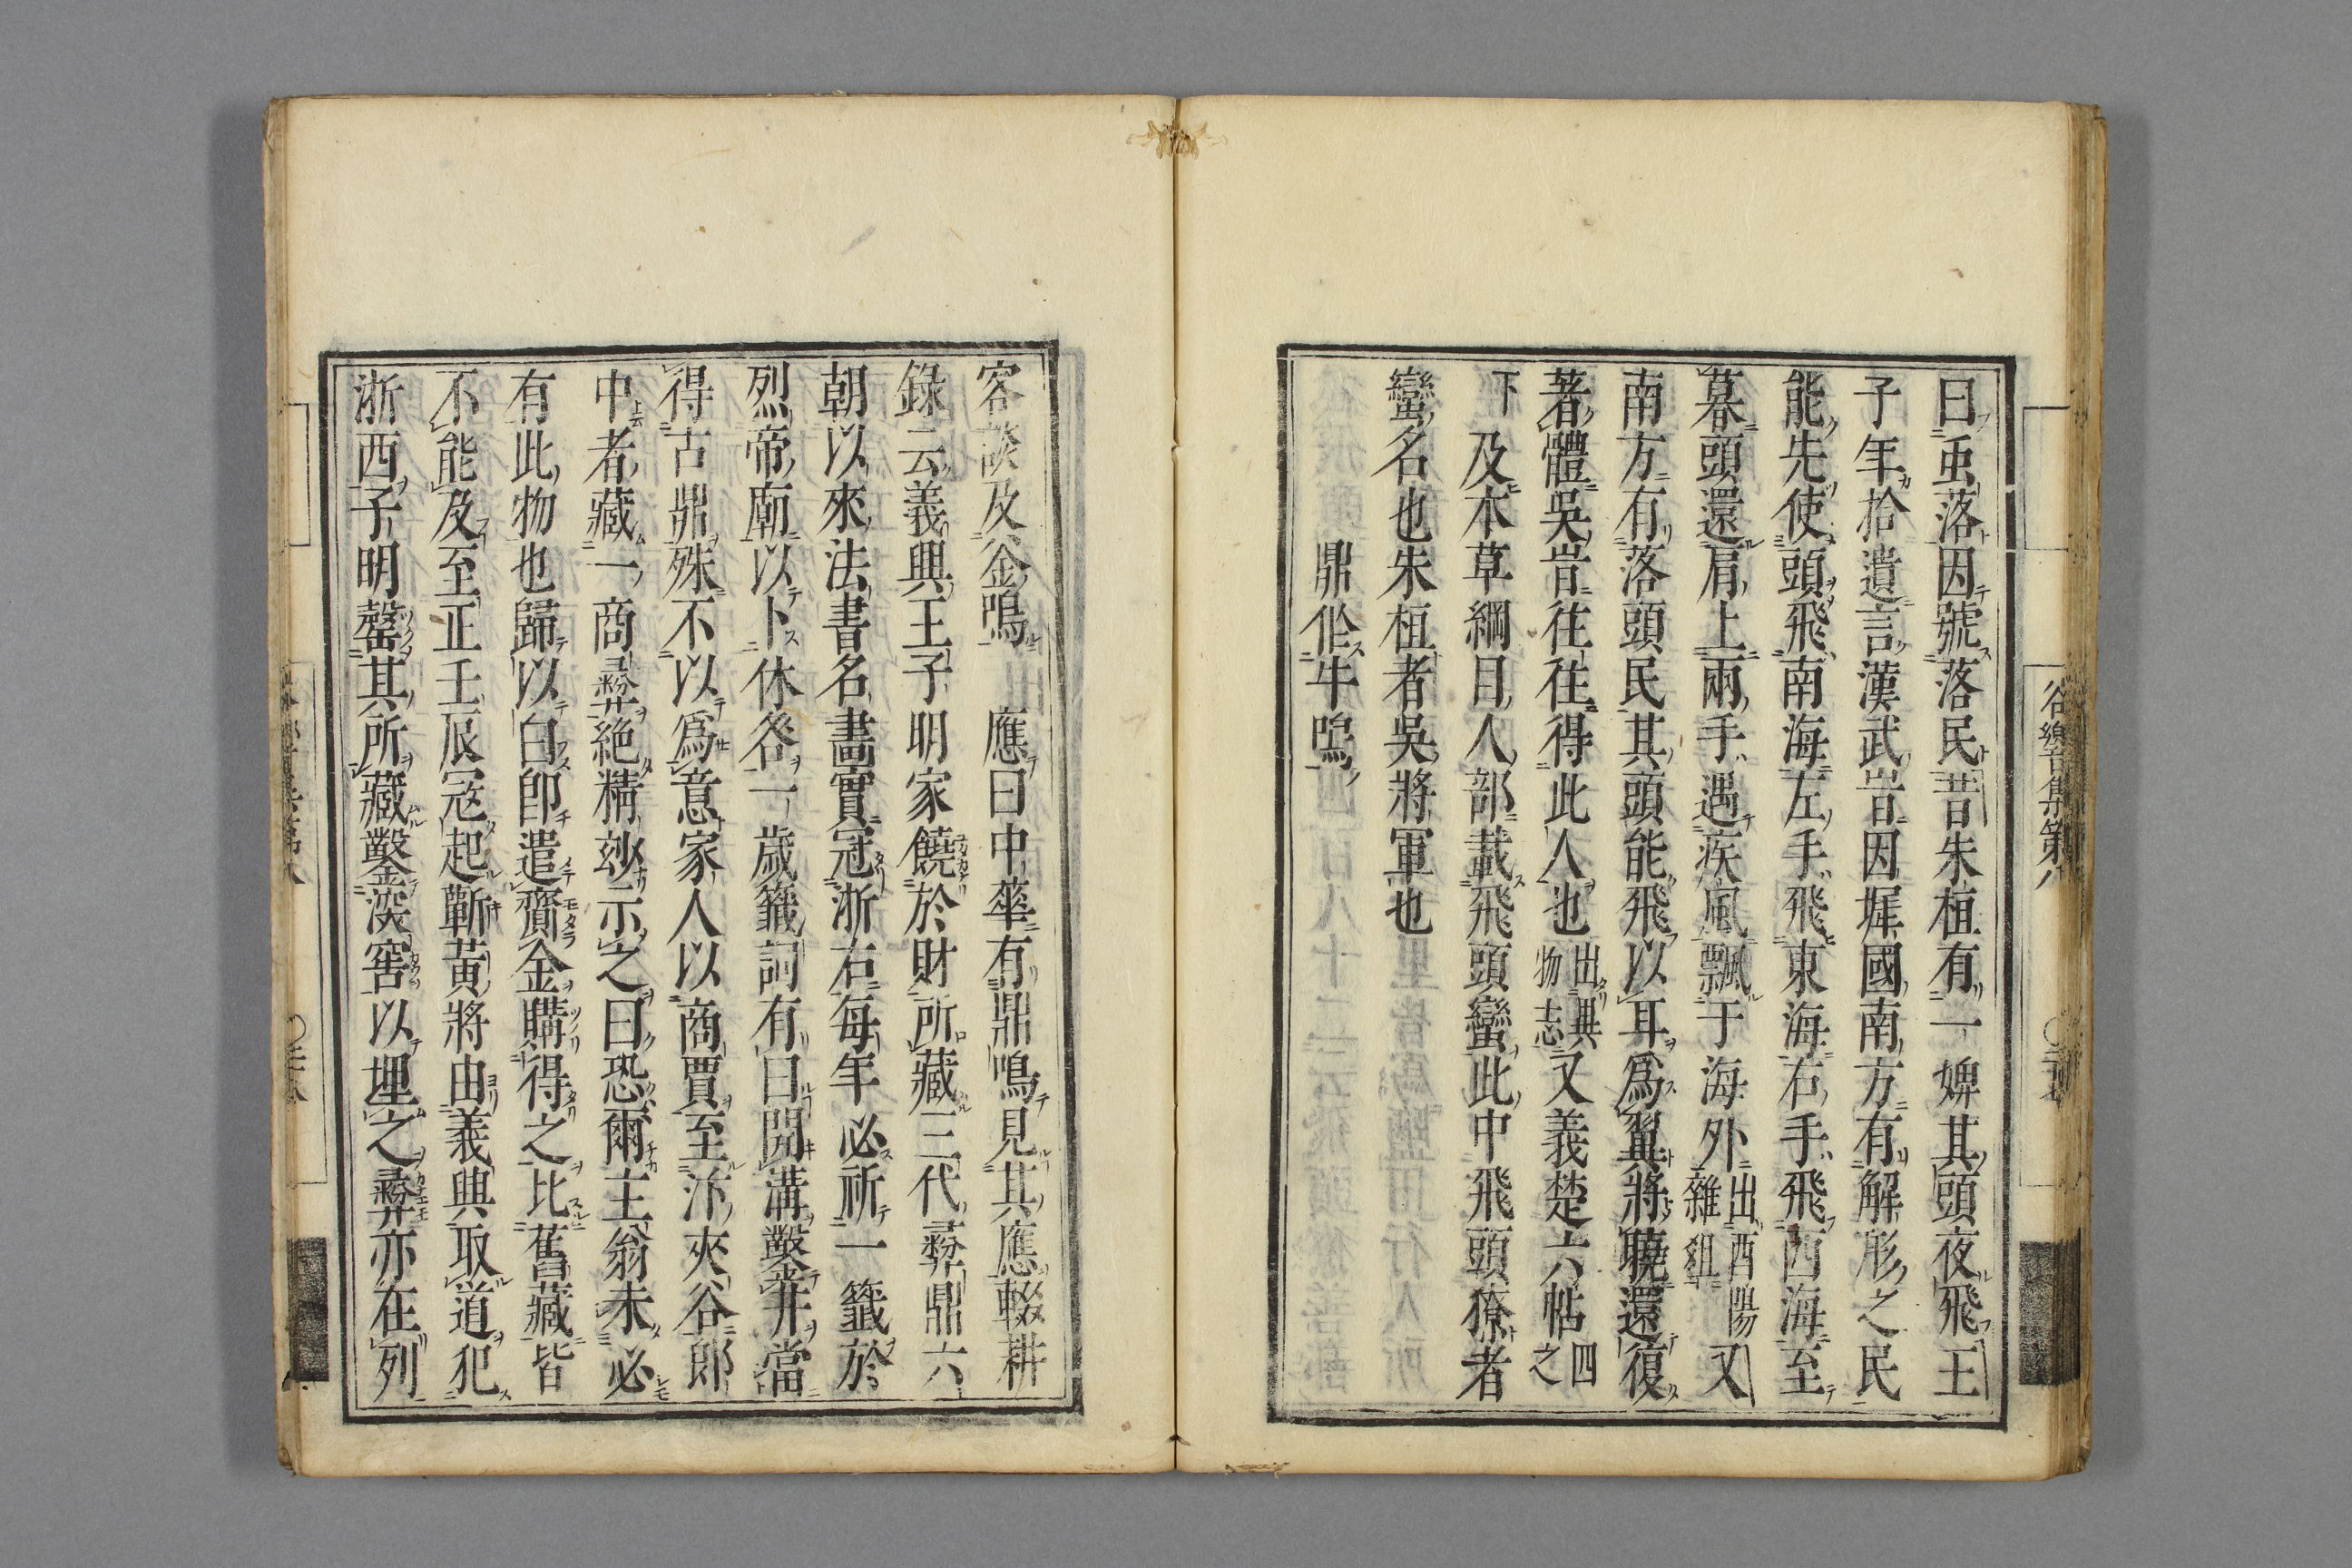 曰䖝落因號落民昔朱桓有一婢其頭夜飛王
子年拾遺言漢武旹因墀國南方有解形之民
能先使頭飛南海左手飛東海右手飛西海至
暮頭還肩上兩手遇疾風飄于海外出酉陽雜俎又
南方有落頭民其頭能飛以耳爲翼將曉還復
著體吳旹往往得此人也出典物志又義楚六帖四之
下及本草綱目人部載飛頭蠻此中飛頭獠者
蠻名也朱桓者吳將軍也
鼎作牛鳴
客談及釜鳴 應曰中華有鼎鳴見其應輟耕
錄云義興王子明家饒於財所藏三代彝鼎六
朝以來法書名畫實冠浙右每年必祈一籤於
烈帝廟以卜休咎一歲籤詞有曰開溝鑿井當
得古鼎殊不以爲意家人以商賈至汴夾谷郎
中者藏一商彝絶精玅示之曰恐爾主翁未必
有此物也歸以白卽遣齎金購得之比舊藏皆
不能及至正壬辰冦起蘄黃將由義興取道犯
浙西子明罄其所藏鑿深窖以埋之彝亦在列
谷響集第八